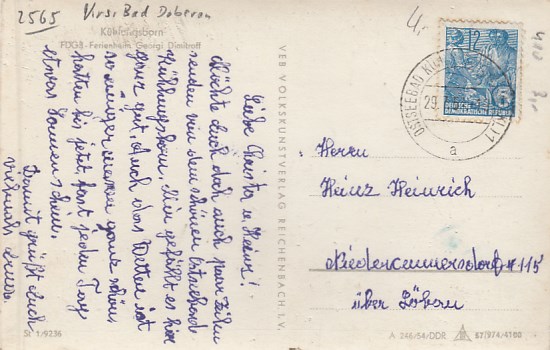 2565 Krs. Bad Doberan
Kühlungsborn
FDGB-Ferienheim Georgi Dimitroff
Liebe Christa u. Heinz!
Möchte Euch doch auch paar Zeilen
senden von dem schönen Ostseebad
Kühlungsborn. Mir gefällt es hier
ganz gut, auch das Wetter ist
so einigermaßen ganz schön,
hatten bis jetzt fast jeden Tag
etwas Sonnenschein.
Damit grüßt Euch
vielmals
St 1/9236
VEB VOLKSKUNSTVERLAG REICHENBACH I. V.
DEUTSCHE
DEMOKRATISCHE REPUBLIK
5
OSTSEEBAD
29.
a
Herrn
Heinz Heinrich
Niedercunnersdorf 115
über Löbau
A 246/54/DDR 87/974/4160